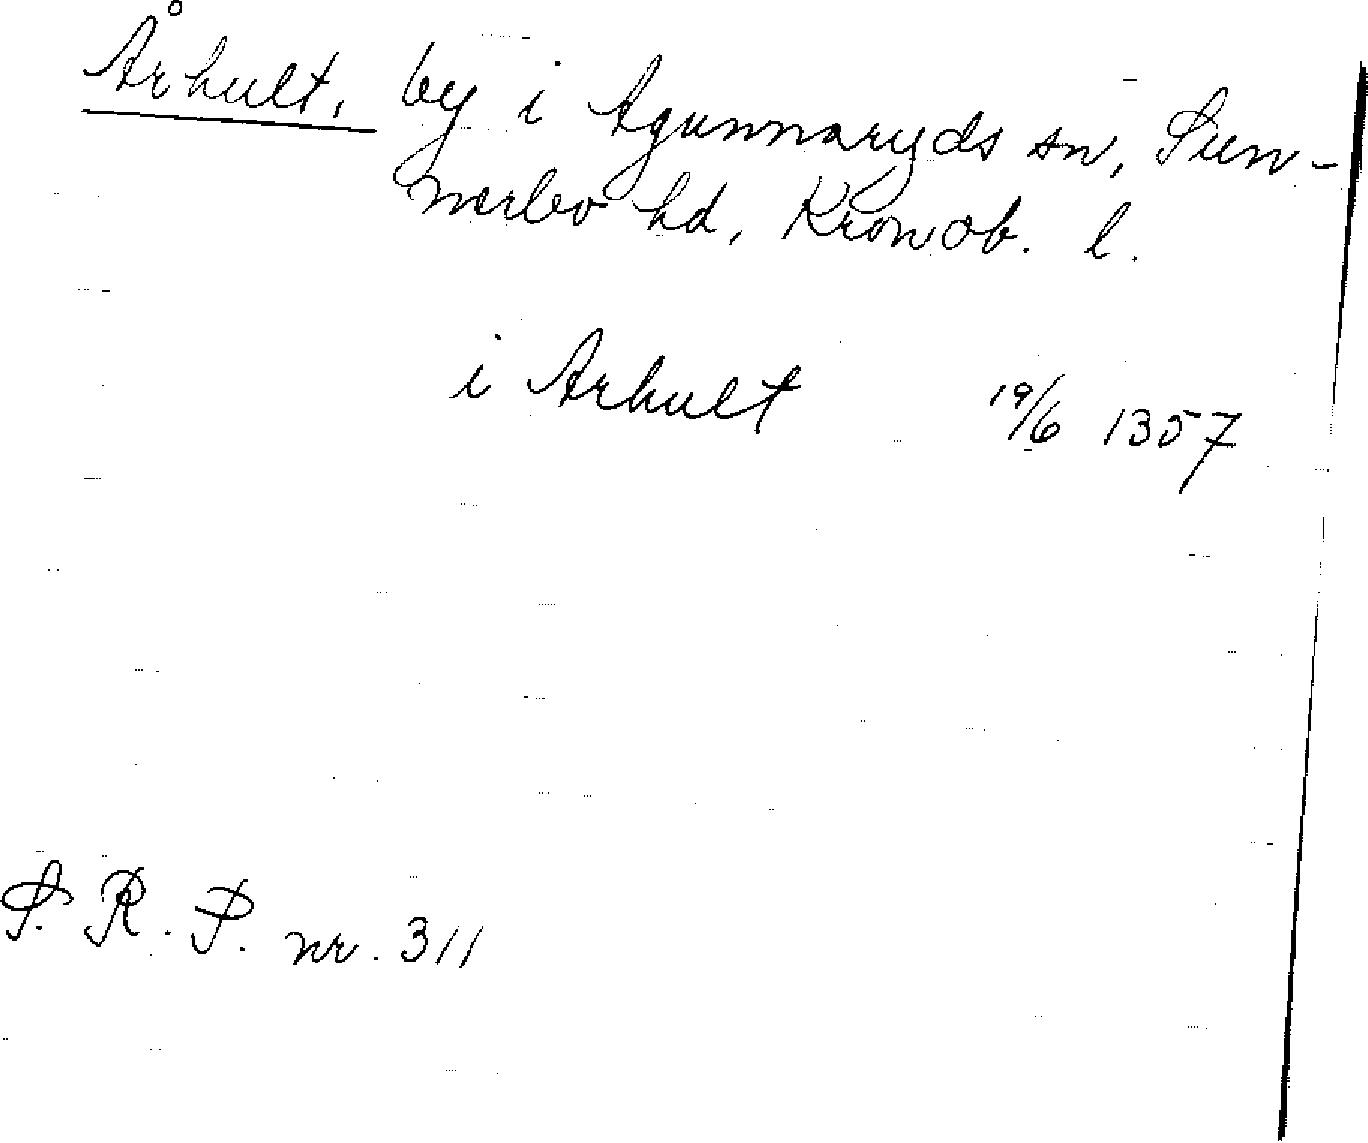 Århult, by i Agunnaryds sn, Sun-
nerbo hd, Kronob. l.
i Arhult 19/6 1357
S. R. P. nr. 311